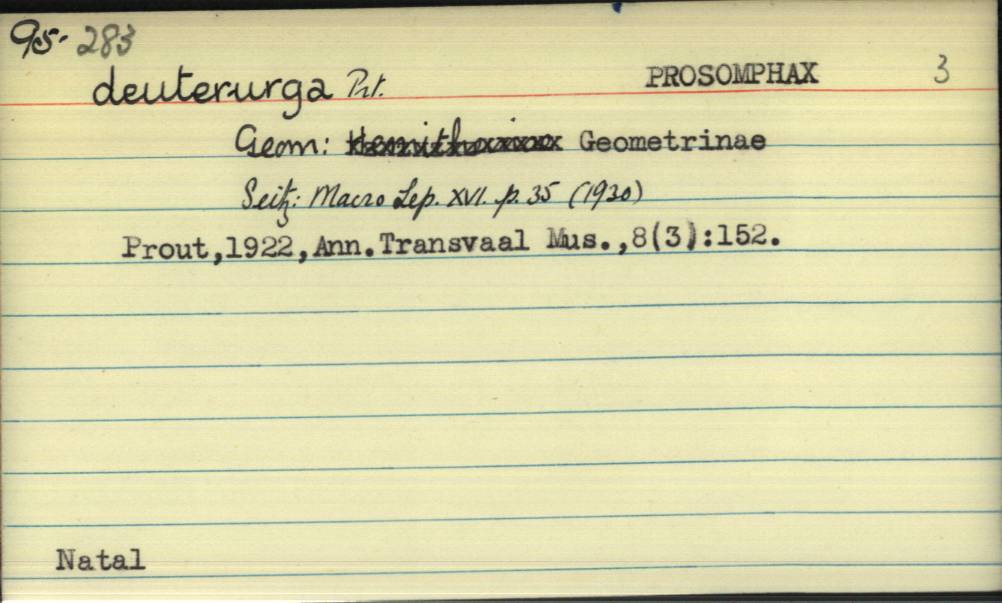 95. 283
deuterurga Prt. PROSOMPHAX 3
Geom: Geometrinae
Seitz: Macro Lep. XVI. p. 35 (1930)
Prout,1922,Ann.Transvaal Mus.,8(3):152.
Natal